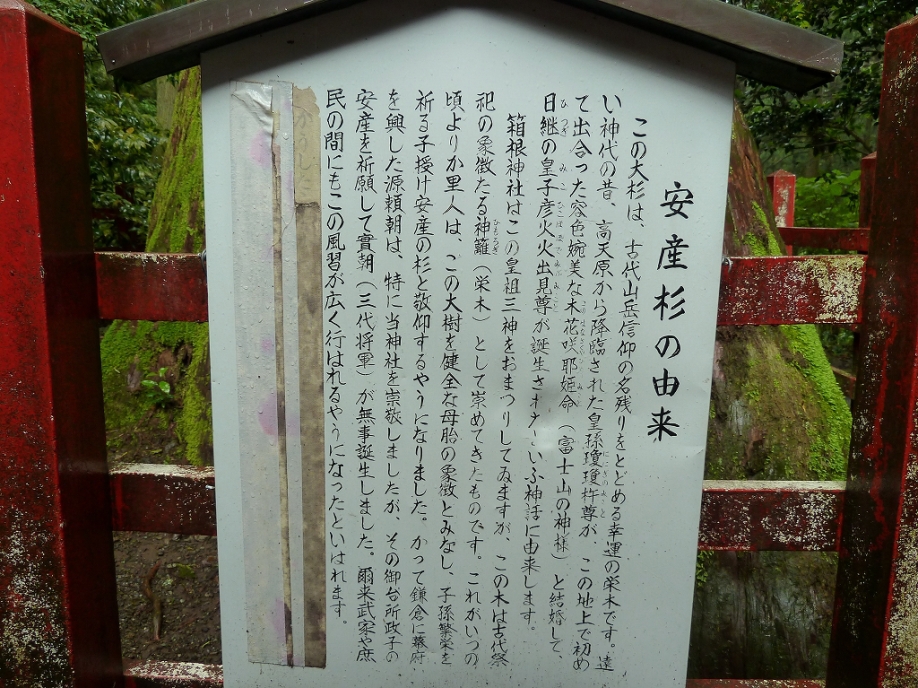 安産杉の由来
この大杉は、古代山岳信仰の名残りをとどめる幸運の栄木です。遠
い神代の昔、高天原から降臨された皇孫瓊瓊杵尊が、この地上で初め
て出合った容色婉美な木花咲耶姫命（富士山の神様）と結婚して、
日継の皇子彦火火出見尊が誕生されたといふ神話に由来します。
箱根神社はこの皇祖三神をおまつりしてゐますが、この木は古代祭
祀の象徴たる神籬（栄木）として崇めてきたものです。これがいつの
頃よりか里人は、この大樹を健全な母胎の象徴とみなし、子孫繁栄を
祈る子授け安産の杉と敬仰するやうになりました。かって鎌倉に幕府
を興した源頼朝は、特に当神社を崇敬しましたが、その御台所政子の
安産を祈願して實朝（三代将軍）が無事誕生しました。爾来武家や庶
民の間にもこの風習が広く行はれるやうになったといはれます。